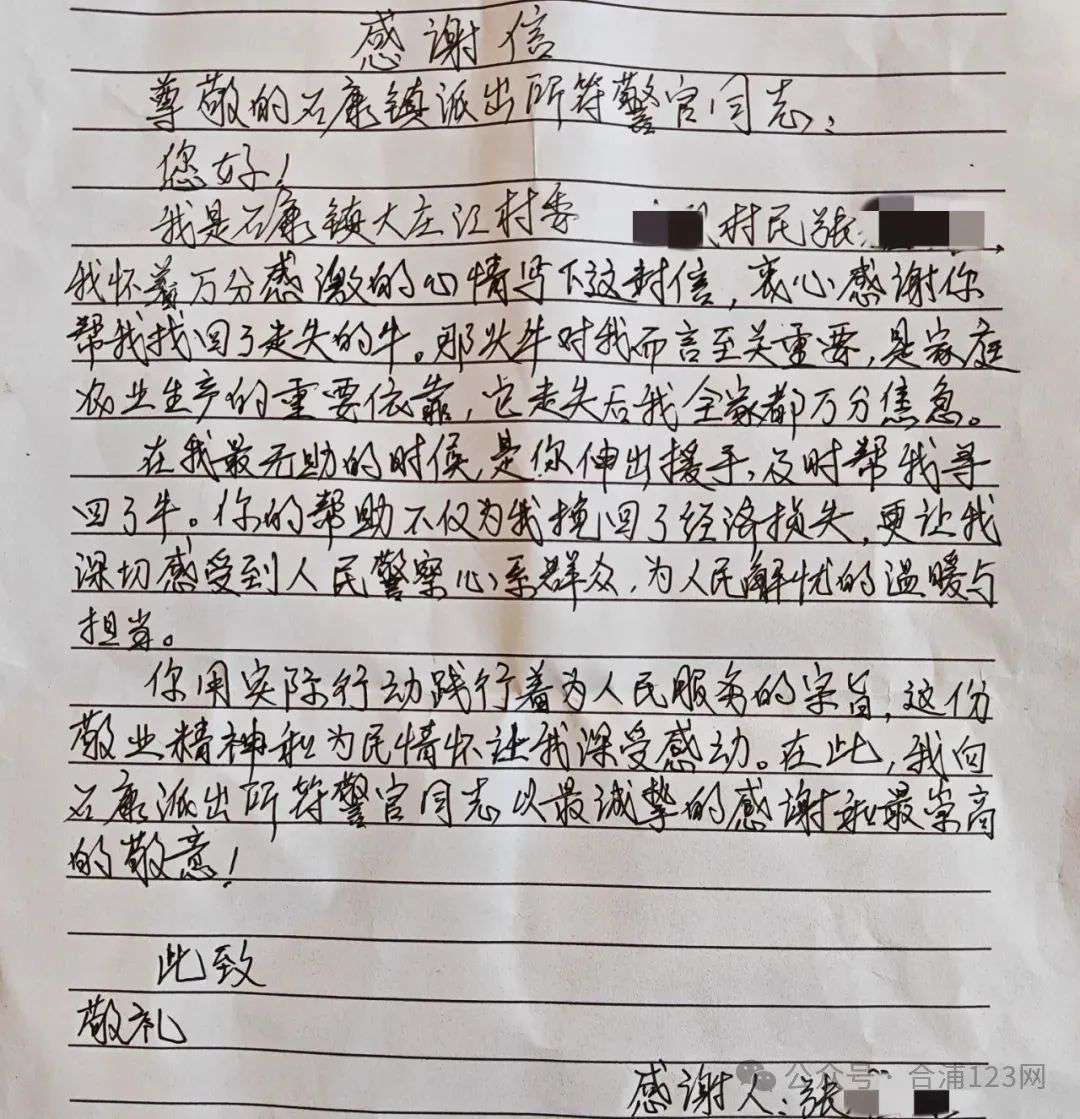 感谢信
尊敬的石康镇派出所符警官同志：
您好！
我是石康镇大庄江村委 村民张
我怀着万分感激的心情写下这封信，衷心感谢你
帮我找回了走失的牛。那头牛对我而言至关重要，是家庭
农业生产的重要依靠，它走失后我全家都万分焦急。
在我最无助的时候，是你伸出援手，及时帮我寻
回了牛。你的帮助不仅为我挽回了经济损失，更让我
深切感受到人民警察心系群众，为人民解忧的温暖与
担当。
你用实际行动践行着为人民服务的宗旨，这份
敬业精神和为民情怀让我深受感动。在此，我向
石康派出所符警官同志以最诚挚的感谢和最崇高
的敬意！
此致
敬礼
感谢人：张
公众号·合浦123网